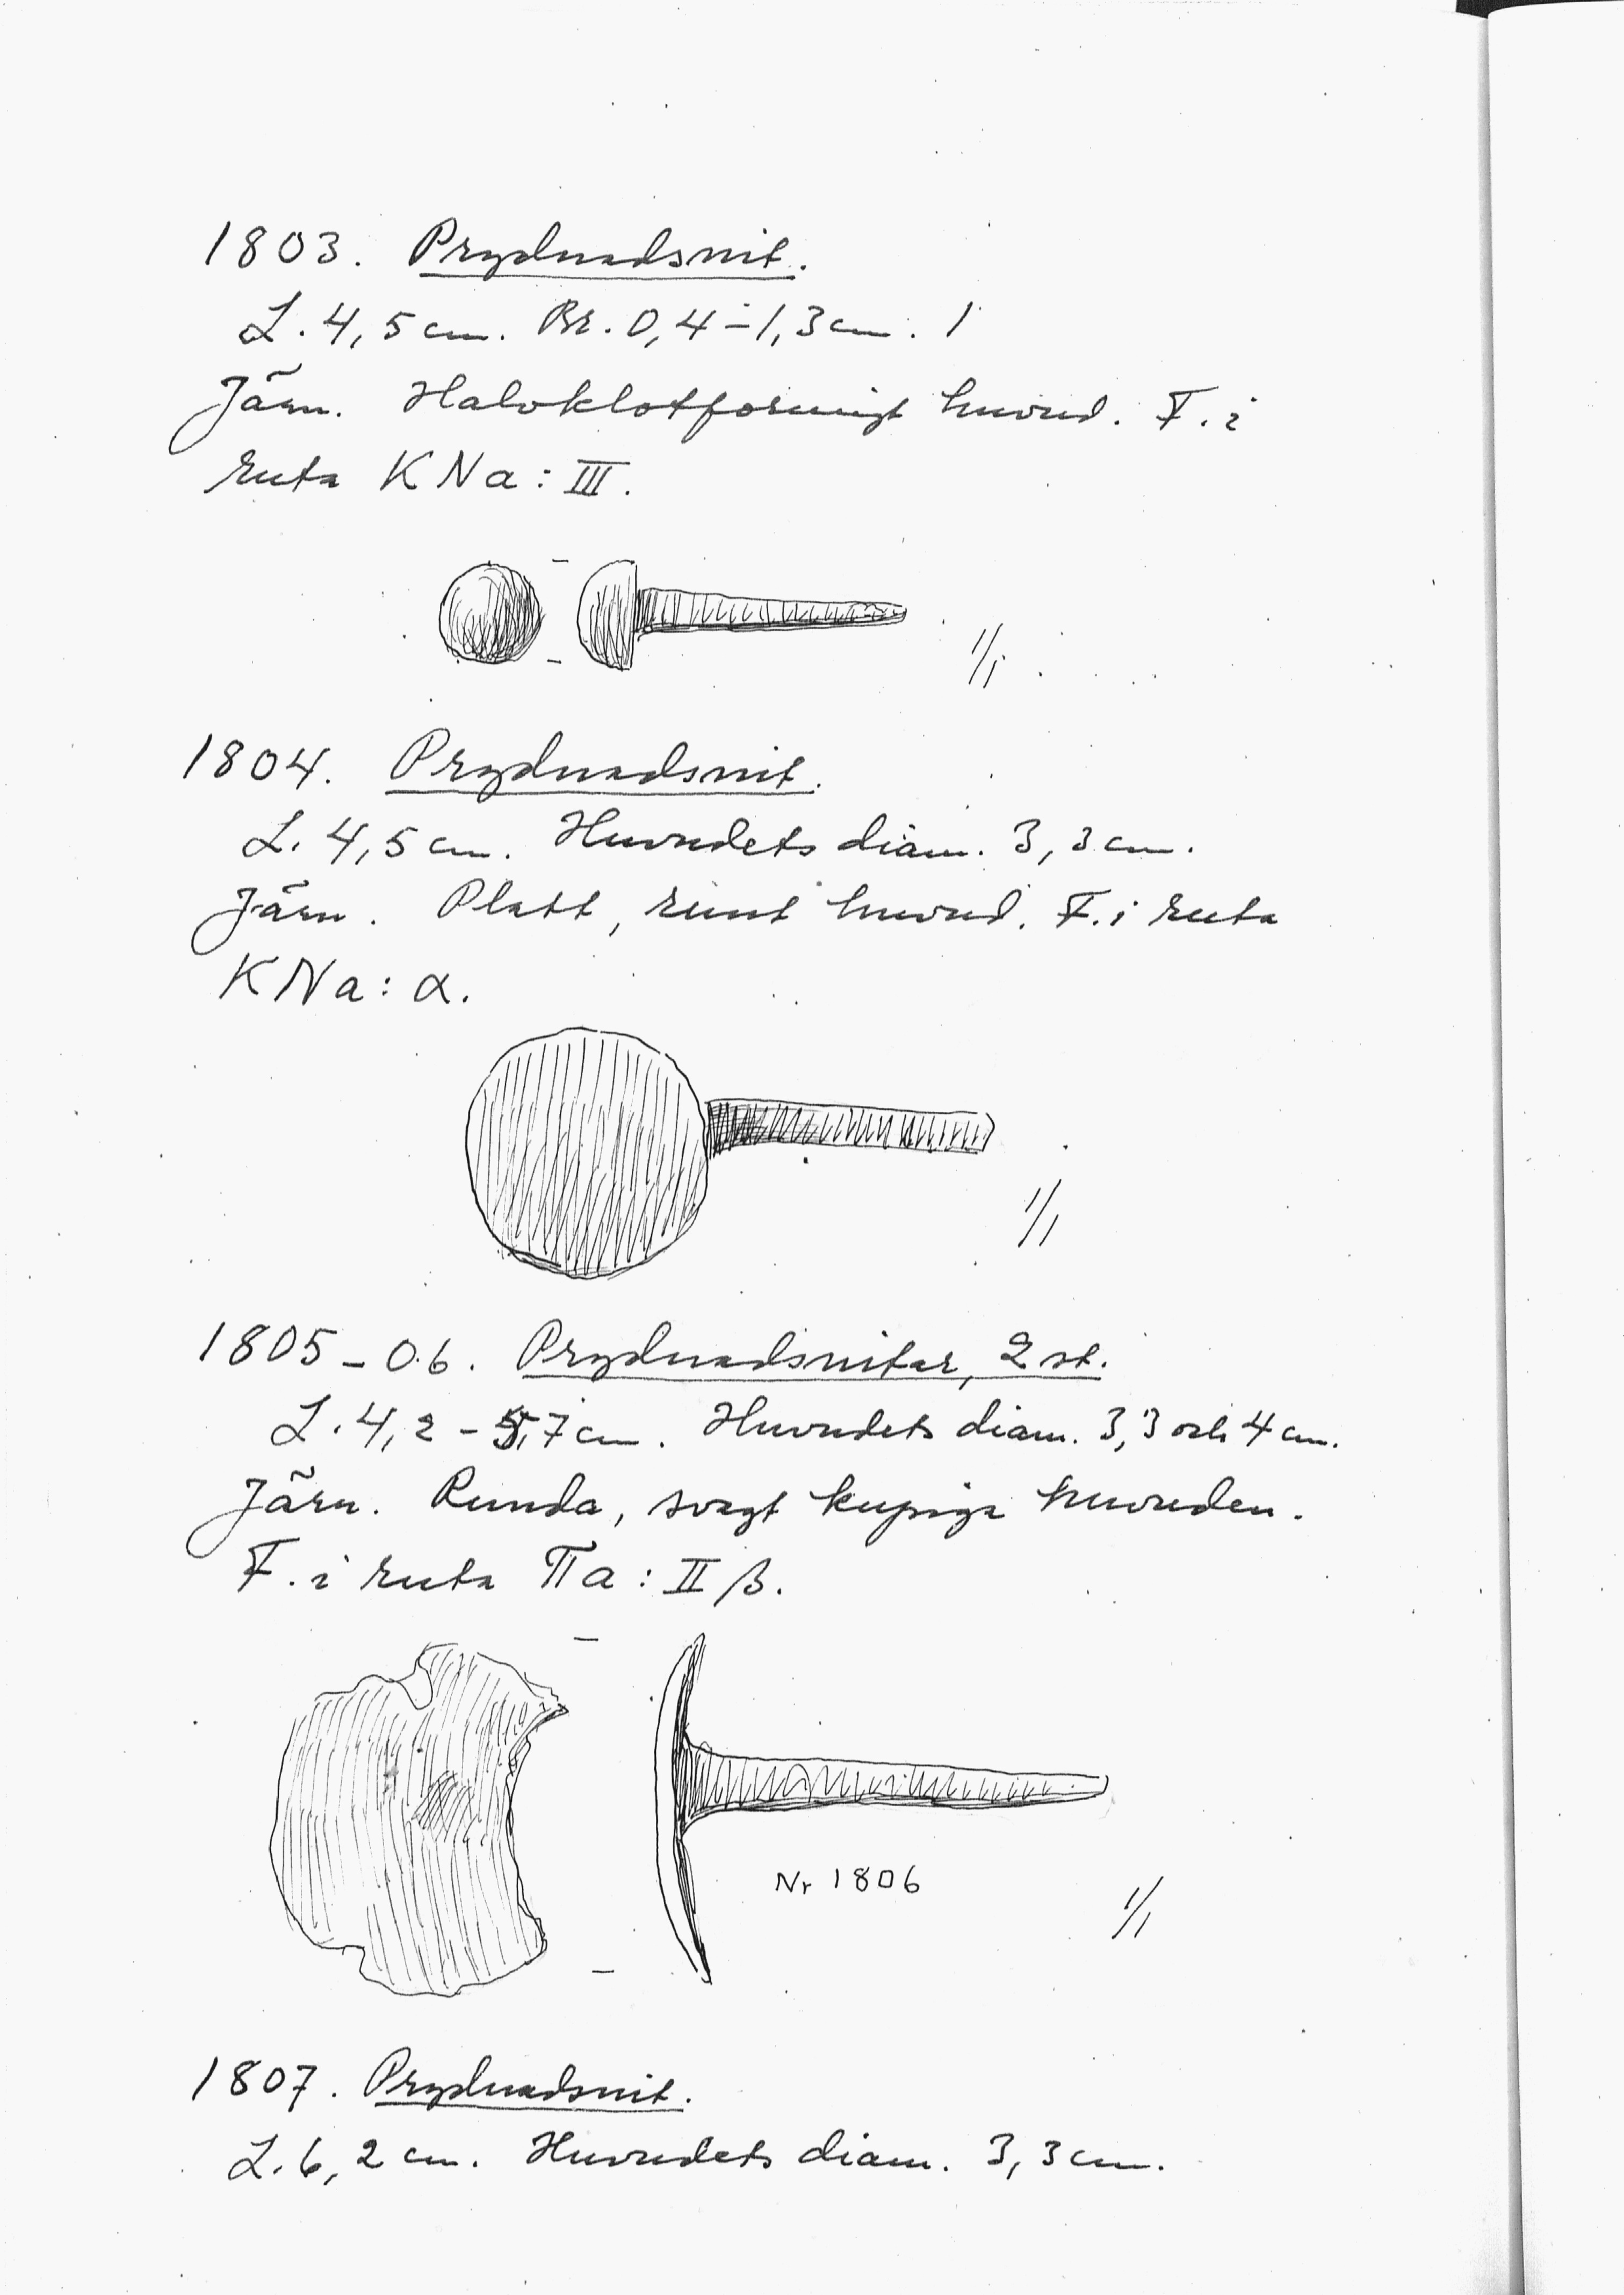 1803. Prydnadsnit.
L. 4,5 cm. Br. 0,4-1,3 cm.
Järn. Halvklotformigt huvud. F. i
ruta K N a : III.
1/1
1804. Prydnadsnit.
L. 4,5 cm. Huvudets diam. 3,3 cm.
Järn. Platt, runt huvud. F. i ruta
K N a : α.
1/1
1805-06. Prydnadsnitar, 2 st.
L. 4,2 - 5,7 cm. Huvudets diam. 3,3 och 4 cm.
Järn. Runda, svagt kupiga huvuden.
F. i ruta Π a : II β.
Nr 1806
1/1
1807. Prydnadsnit.
L. 6,2 cm. Huvudets diam. 3,3 cm.